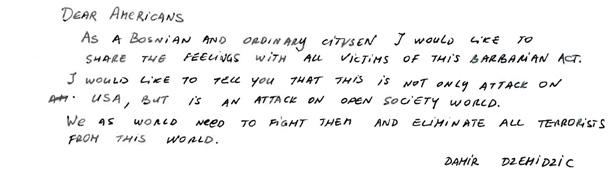 DEAR AMERICANS
AS A BOSNIAN AND ORDINARY CITYSEN I WOULD LIKE TO
SHARE THE FEELINGS WITH ALL VICTIMS OF THIS BARBARIAN ACT.
I WOULD LIKE TO TELL YOU THAT THIS IS NOT ONLY ATTACK ON
USA, BUT IS AN ATTACK ON OPEN SOCIETY WORLD.
WE AS WORLD NEED TO FIGHT THEM AND ELIMINATE ALL TERRORISTS
FROM THIS WORLD.
DAMIR DZEMIDZIC